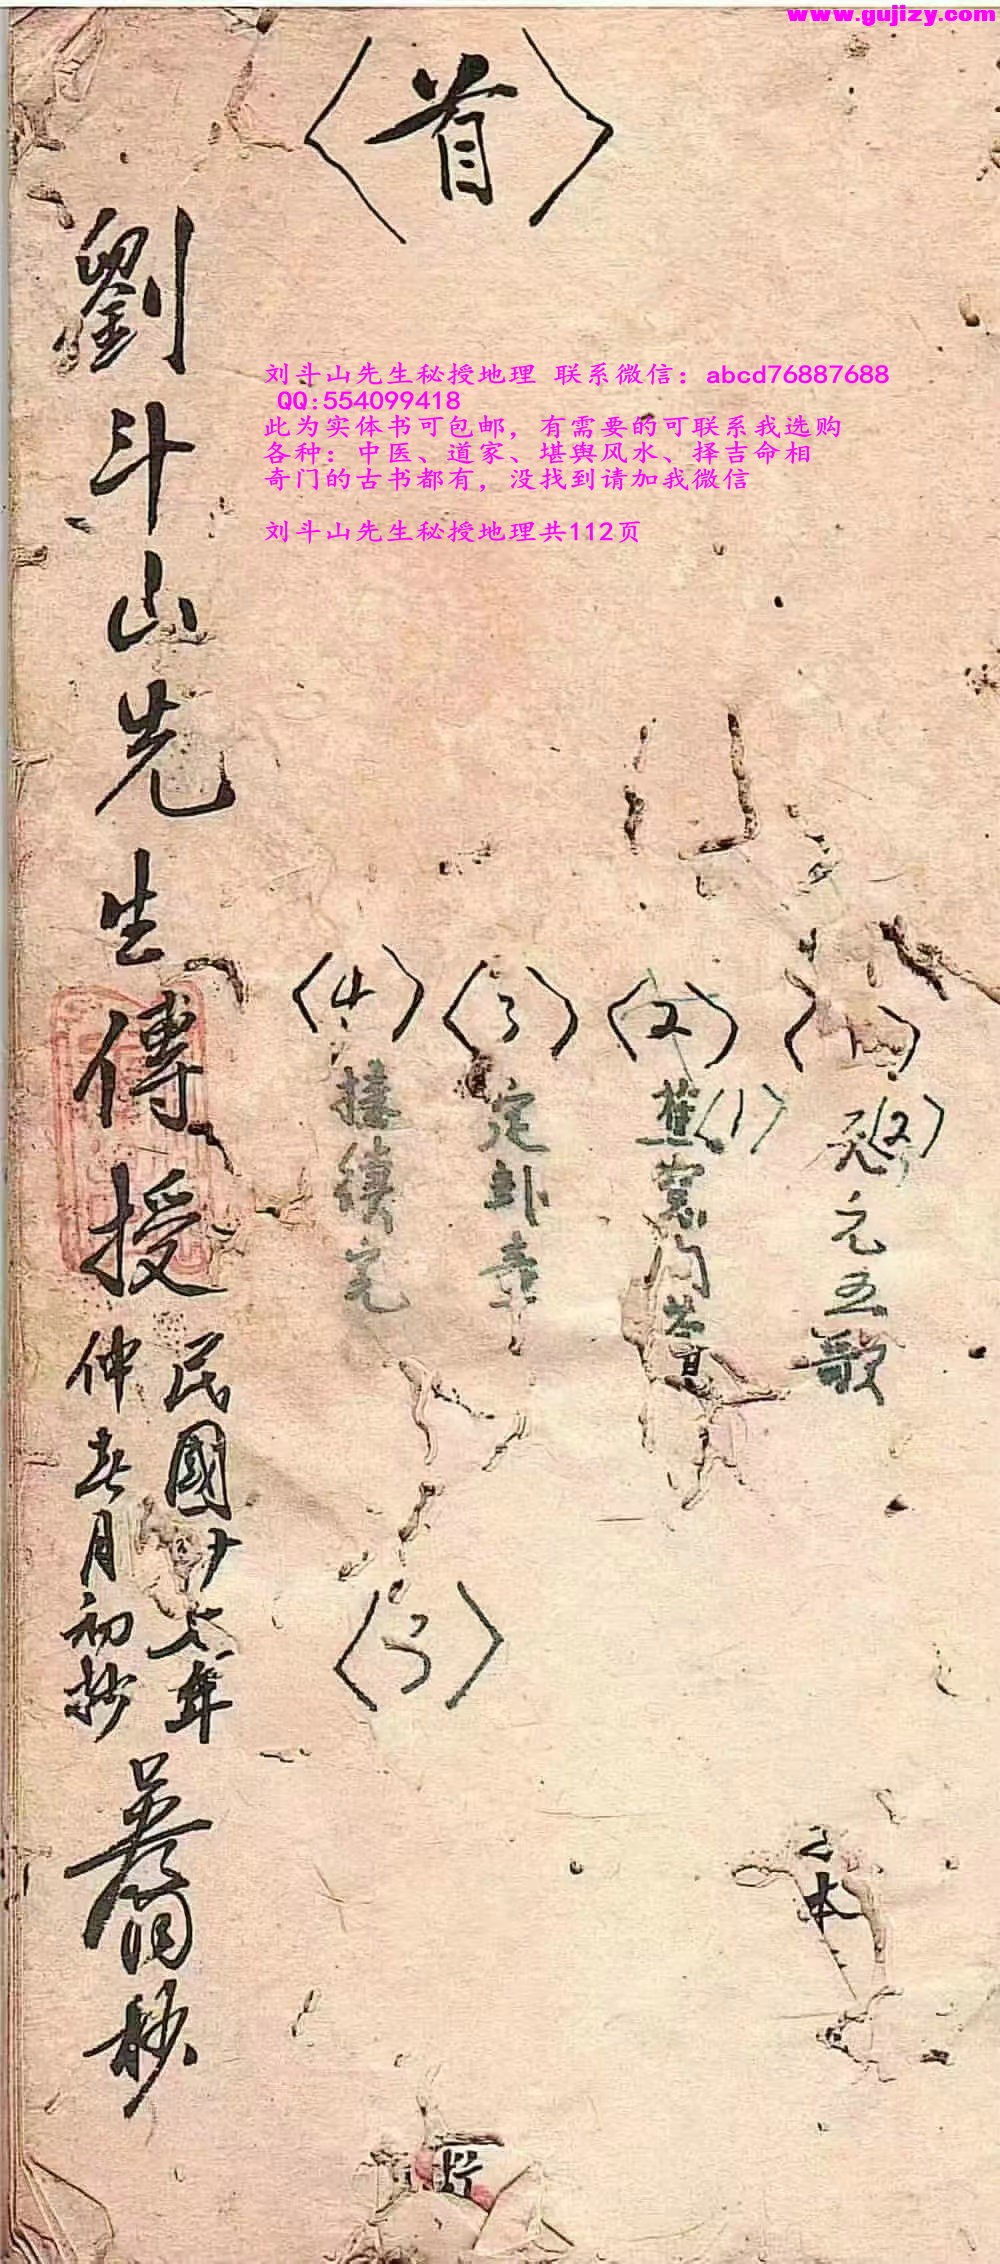 www.gujizy.com
〈首〉
刘斗山先生秘授地理 联系微信：abcd76887688
QQ:554099418
此为实体书可包邮，有需要的可联系我选购
各种：中医、道家、堪舆风水、择吉命相
奇门的古书都有，没找到请加我微信
刘斗山先生秘授地理共112页
〈1〉
〈2〉
元五歌
〈2〉
〈1〉
蕉窓问答
〈3〉
定卦章
〈4〉
接续完
〈3〉
劉斗山先生傳授
民國廿七年
仲春月初抄
抄
本